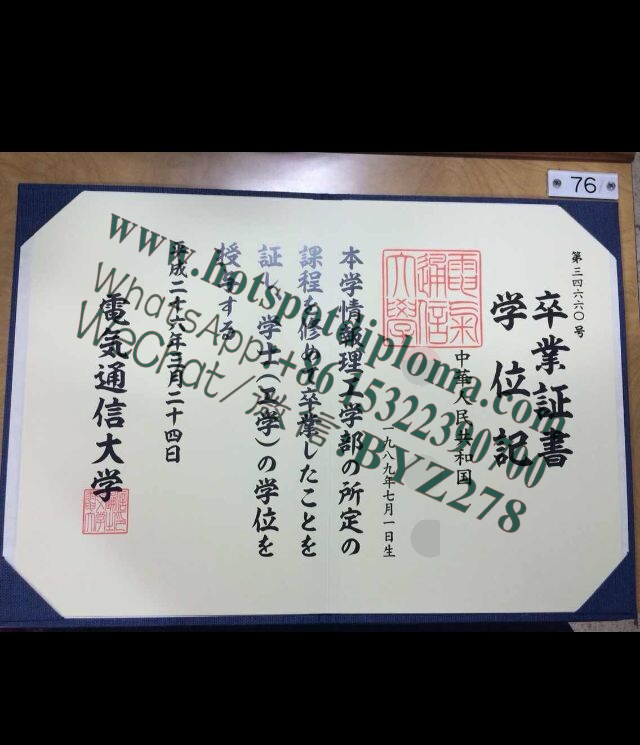 76
第三四六六〇号
卒業証書
学位記
電氣通信大學
中華人民共和国
一九八九年七月一日生
本学情報理工学部の所定の
課程を修めて卒業したことを
証し学士(工学)の学位を
授与する
平成二十六年三月二十四日
電気通信大学
www.hotspotdiploma.com
WhatsApp:
WeChat/微信:BYZ278